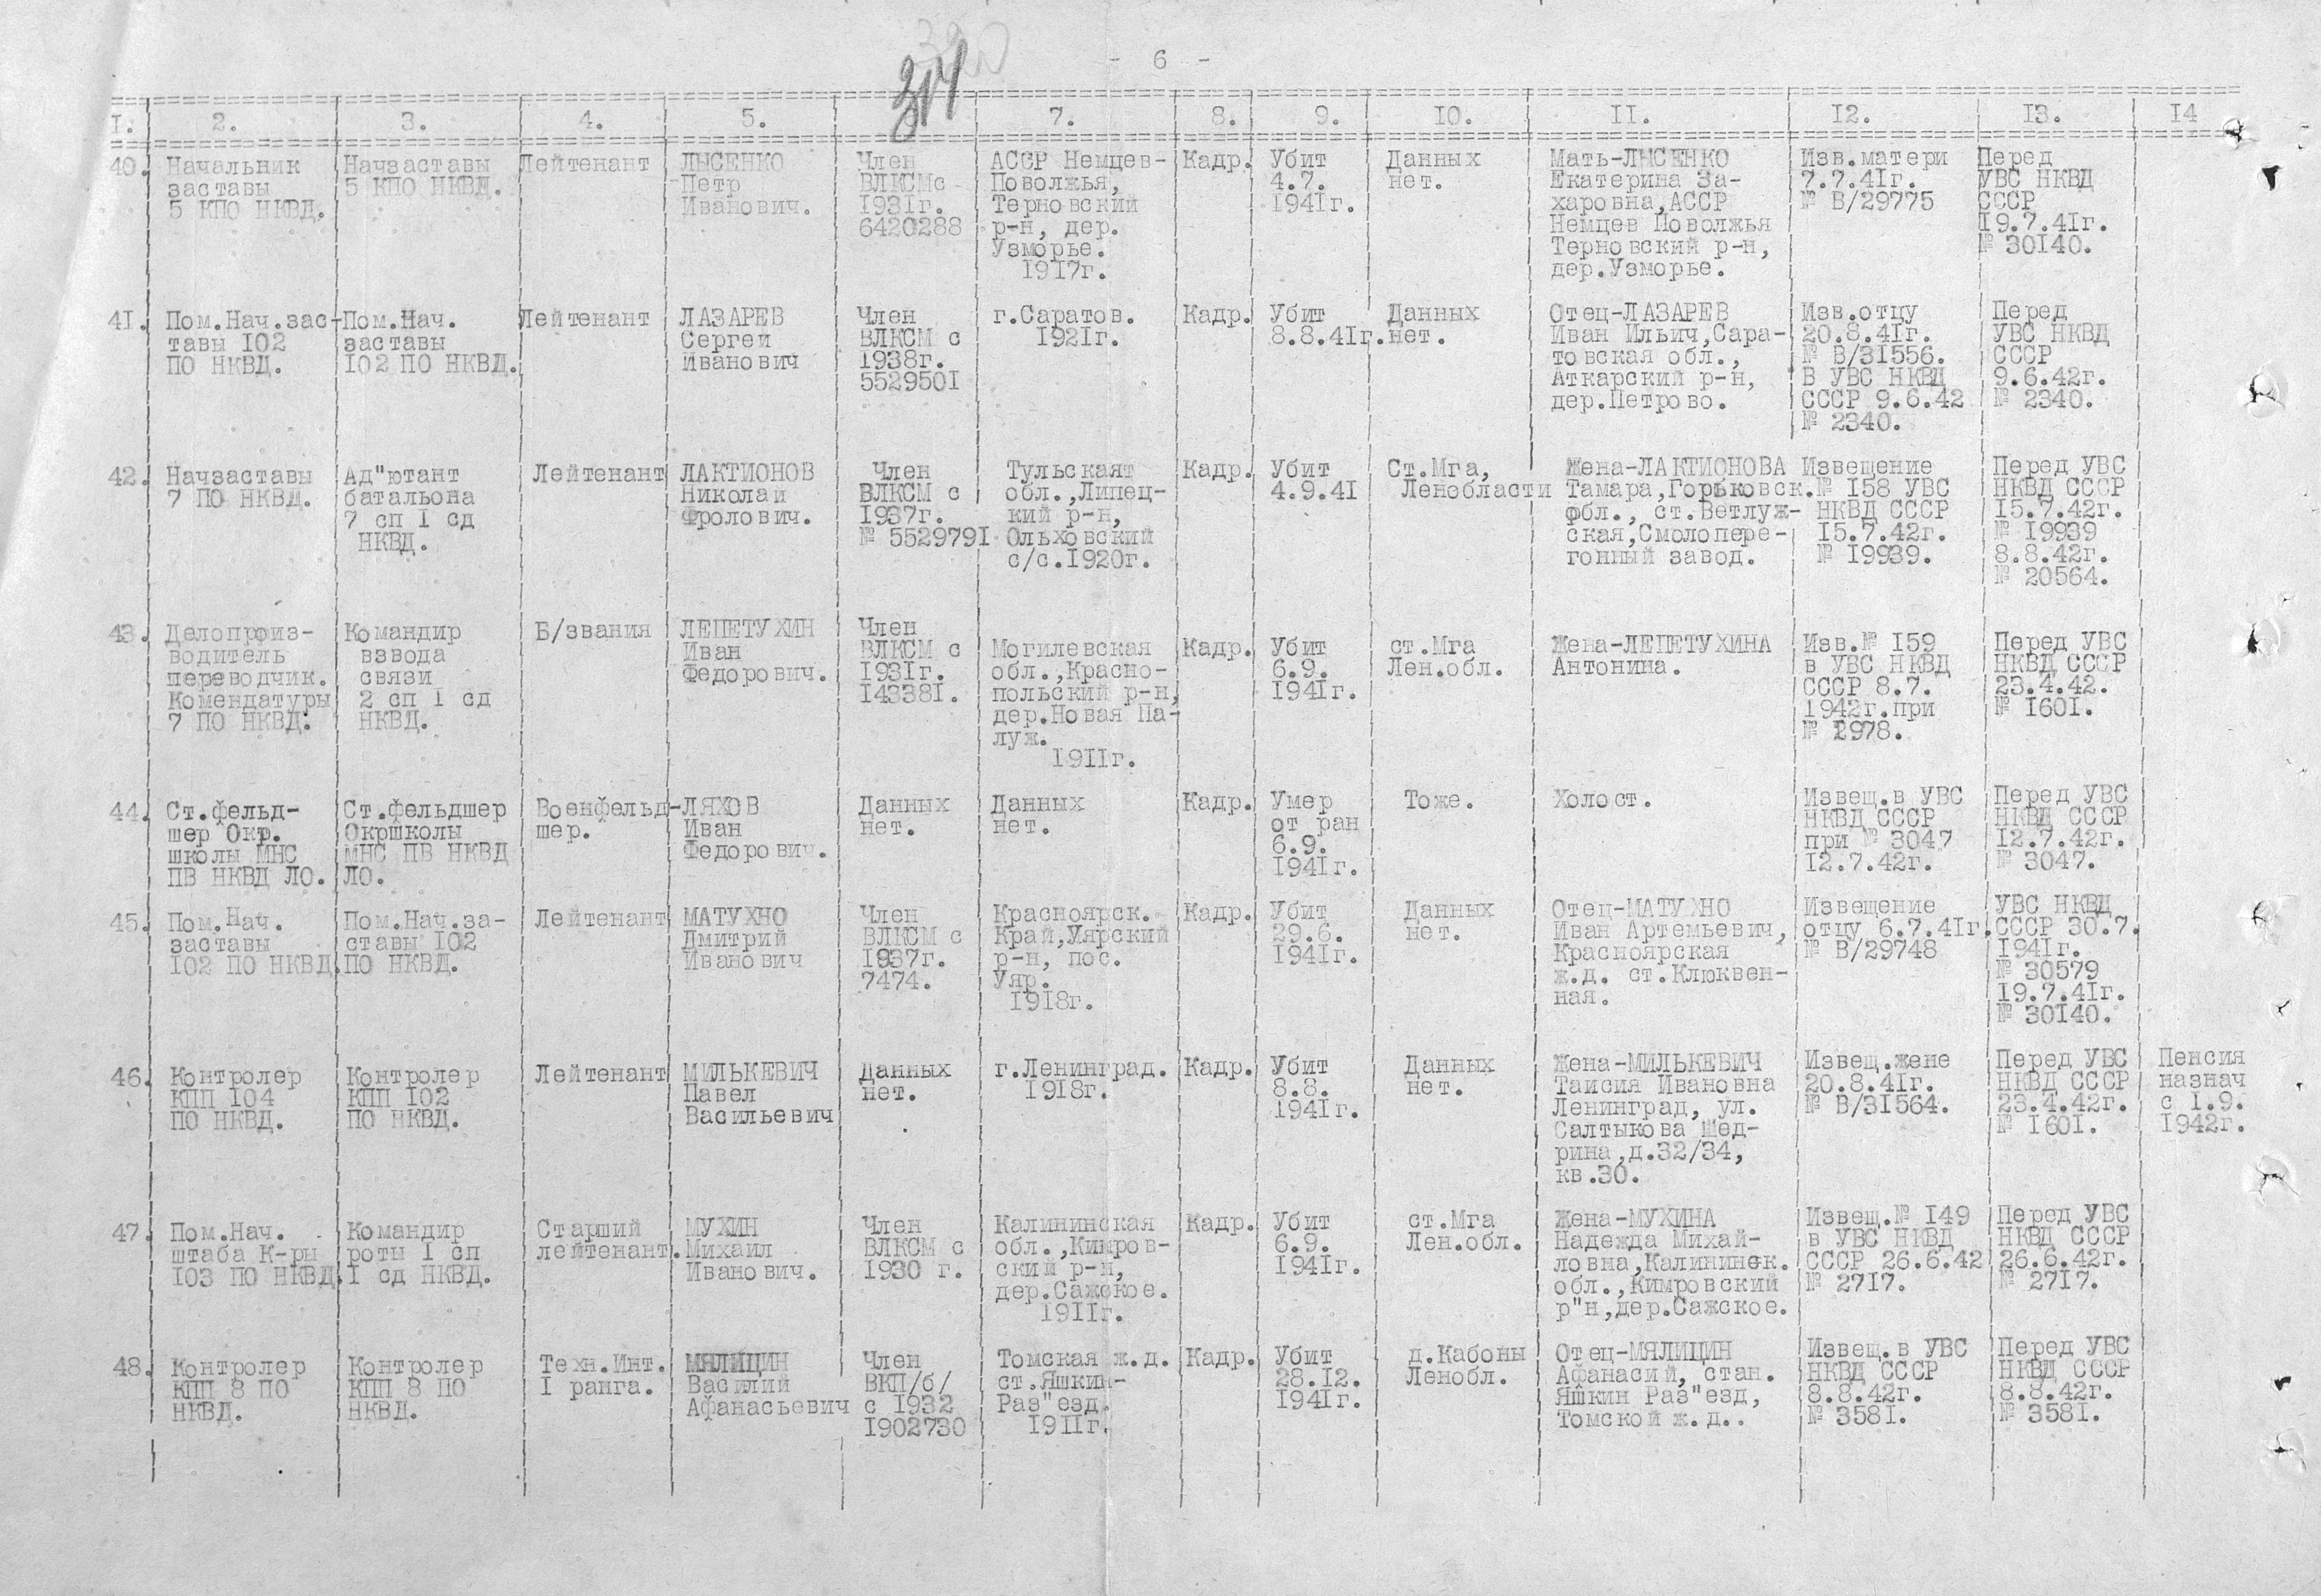 314
- 6 -
I. 2. 3. 4. 5. 7. 8. 9. 10. II. 12. 13. I4
40. Начальник
заставы
5 КПО НКВД.
Начзаставы
5 КПО НКВД.
Лейтенант
ЛЫСЕНКО
Петр
Иванович.
Член
ВЛКСМс
1931г.
6420288
АССР Немцев-
Поволжья,
Терновский
р-н, дер.
Узморье.
1917г.
Кадр.
Убит
4.7.
1941г.
Данных
нет.
Мать-ЛЫСЕНКО
Екатерина За-
харовна,АССР
Немцев Поволжья
Терновский р-н,
дер.Узморье.
Изв.матери
7.7.41г.
№ В/29775
Перед
УВС НКВД
СССР
19.7.41г.
№ 30140.
41. Пом.Нач.зас-
тавы 102
ПО НКВД.
Пом.Нач.
заставы
102 ПО НКВД.
Лейтенант
ЛАЗАРЕВ
Сергей
Иванович
Член
ВЛКСМ с
1938г.
5529501
г.Саратов.
1921г.
Кадр.
Убит
8.8.41г.
Данных
нет.
Отец-ЛАЗАРЕВ
Иван Ильич,Сара-
товская обл.,
Аткарский р-н,
дер.Петрово.
Изв.отцу
20.8.41г.
№ В/31556.
В УВС НКВД
СССР 9.6.42
№ 2340.
Перед
УВС НКВД
СССР
9.6.42г.
№ 2340.
42. Начзаставы
7 ПО НКВД.
Ад"ютант
батальона
7 сп 1 сд
НКВД.
Лейтенант
ЛАКТИОНОВ
Николай
Фролович.
Член
ВЛКСМ с
1937г.
№ 5529791
Тульскаят
обл.,Липец-
кий р-н,
Ольховский
с/с.1920г.
Кадр.
Убит
4.9.41
Ст.Мга,
Ленобласти
Жена-ЛАКТИОНОВА
Тамара,Горьковск.
фбл., ст.Ветлуж-
ская,Смолопере-
гонный завод.
Извещение
№ 158 УВС
НКВД СССР
15.7.42г.
№ 19939.
Перед УВС
НКВД СССР
15.7.42г.
№ 19939
8.8.42г.
№ 20564.
43. Делопроиз-
водитель
переводчик.
Комендатуры
7 ПО НКВД.
Командир
взвода
связи
2 сп 1 сд
НКВД.
Б/звания
ЛЕПЕТУХИН
Иван
Федорович.
Член
ВЛКСМ с
1931г.
143381.
Могилевская
обл.,Красно-
польский р-н,
дер.Новая Па-
луж.
1911г.
Кадр.
Убит
6.9.
1941г.
ст.Мга
Лен.обл.
Жена-ЛЕПЕТУХИНА
Антонина.
Изв.№ 159
в УВС НКВД
СССР 8.7.
1942г.при
№ 2978.
Перед УВС
НКВД СССР
23.4.42.
№ 1601.
44. Ст.фельд-
шер Окр.
школы МНС
ПВ НКВД ЛО.
Ст.фельдшер
Окршколы
МНС ПВ НКВД
ЛО.
Военфельд-
шер.
ЛЯХОВ
Иван
Федорович.
Данных
нет.
Данных
нет.
Кадр.
Умер
от ран
6.9.
1941г.
Тоже.
Холост.
Извещ.в УВС
НКВД СССР
при № 3047
12.7.42г.
Перед УВС
НКВД СССР
12.7.42г.
№ 3047.
45. Пом.Нач.
заставы
102 ПО НКВД.
Пом.Нач.за-
ставы 102
ПО НКВД.
Лейтенант
МАТУХНО
Дмитрий
Иванович
Член
ВЛКСМ с
1937г.
7474.
Красноярск.
Край,Уярский
р-н, пос.
Уяр.
1918г.
Кадр.
Убит
29.6.
1941г.
Данных
нет.
Отец-МАТУХНО
Иван Артемьевич,
Красноярская
ж.д. ст.Клюквен-
ная.
Извещение
отцу 6.7.41г.
№ В/29748
УВС НКВД
СССР 30.7.
1941г.
№ 30579
19.7.41г.
№ 30140.
46. Контролер
КПП 104
ПО НКВД.
Контролер
КПП 102
ПО НКВД.
Лейтенант
МИЛЬКЕВИЧ
Павел
Васильевич
Данных
нет.
г.Ленинград.
1918г.
Кадр.
Убит
8.8.
1941г.
Данных
нет.
Жена-МИЛЬКЕВИЧ
Таисия Ивановна
Ленинград, ул.
Салтыкова Щед-
рина,д.32/34,
кв.30.
Извещ.жене
20.8.41г.
№ В/31564.
Перед УВС
НКВД СССР
23.4.42г.
№ 1601.
Пенсия
назнач
с 1.9.
1942г.
47. Пом.Нач.
штаба К-ры
103 ПО НКВД.
Командир
роты 1 сп
1 сд НКВД.
Старший
лейтенант.
МУХИН
Михаил
Иванович.
Член
ВЛКСМ с
1930 г.
Калининская
обл.,Кимров-
ский р-н,
дер.Сажское.
1911г.
Кадр.
Убит
6.9.
1941г.
ст.Мга
Лен.обл.
Жена-МУХИНА
Надежда Михай-
ловна,Калининск.
обл.,Кимровский
р"н,дер.Сажское.
Извещ.№ 149
в УВС НКВД
СССР 26.6.42
№ 2717.
Перед УВС
НКВД СССР
26.6.42г.
№ 2717.
48. Контролер
КПП 8 ПО
НКВД.
Контролер
КПП 8 ПО
НКВД.
Техн.Инт.
I ранга.
МЯЛИЦИН
Василий
Афанасьевич
Член
ВКП/б/
с 1932
1902730
Томская ж.д.
ст.Яшкин-
Раз"езд.
1911г.
Кадр.
Убит
28.12.
1941г.
д.Кабоны
Ленобл.
Отец-МЯЛИЦИН
Афанасий, стан.
Яшкин Раз"езд,
Томской ж.д..
Извещ.в УВС
НКВД СССР
8.8.42г.
№ 3581.
Перед УВС
НКВД СССР
8.8.42г.
№ 3581.